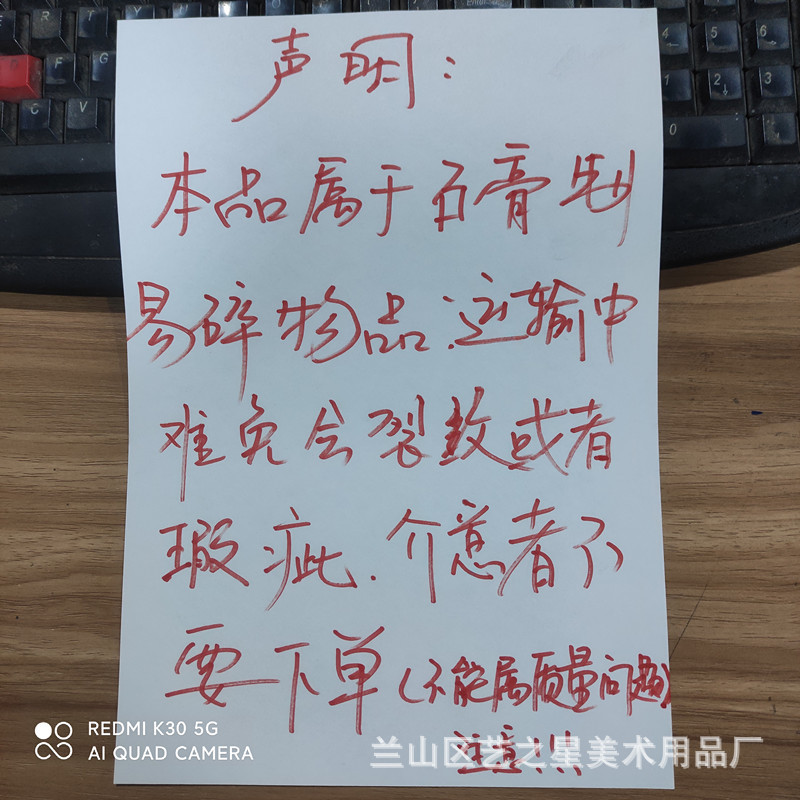 声明：
本品属于石膏制
易碎物品.运输中
难免会裂纹或者
瑕疵.介意者不
要下单(不能属质量问题)
注意!!
REDMI K30 5G
AI QUAD CAMERA
兰山区艺之星美术用品厂